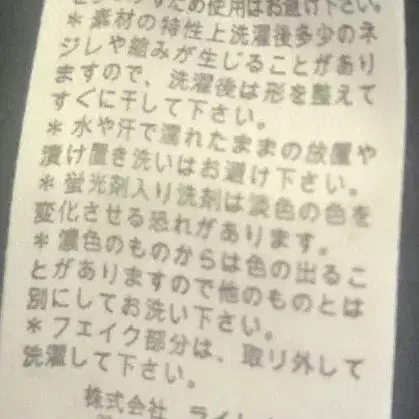 ため使用はお避け下さい。
* 素材の特性上洗濯後多少のネ
ジレや縮みが生じることがあり
ますので、洗濯後は形を整えて
すぐに干して下さい。
* 水や汗で濡れたままの放置や
漬け置き洗いはお避け下さい。
* 蛍光剤入り洗剤は淡色の色を
変化させる恐れがあります。
* 濃色のものからは色の出るこ
とがありますので他のものとは
別にしてお洗い下さい。
* フェイク部分は、取り外して
洗濯して下さい。
株式会社 ライト